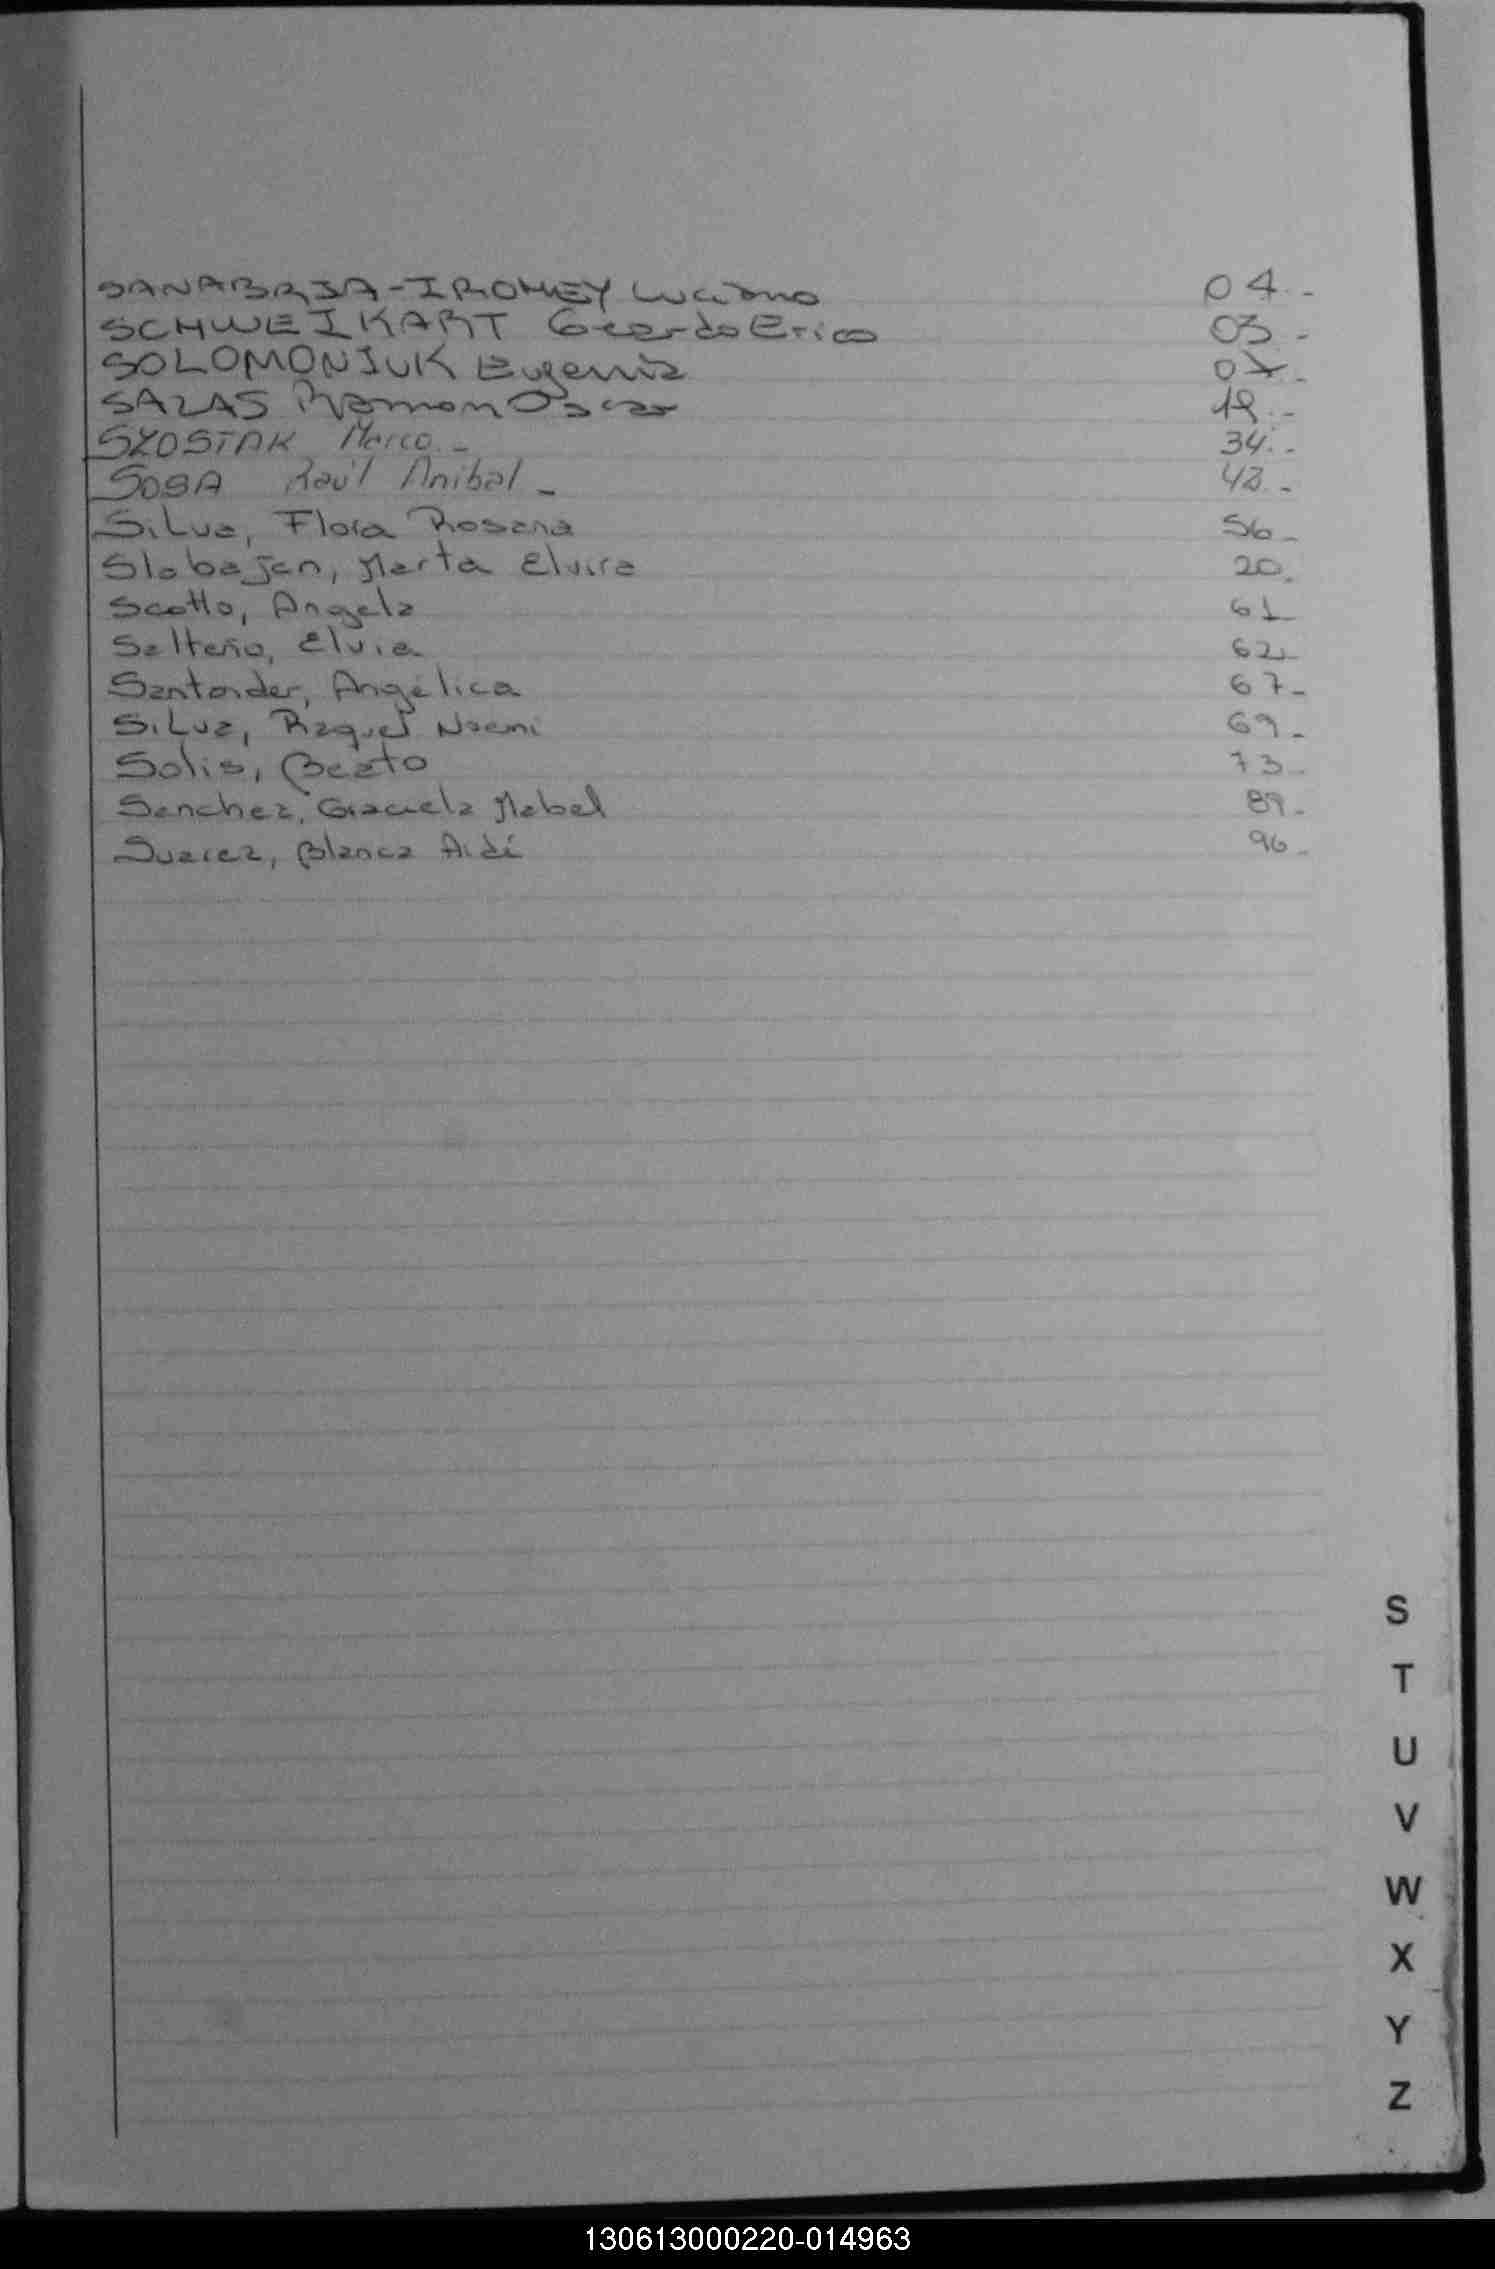 SANABRIA-IROMEY Luciano 04.-
SCHWEIKART Gerardo Erico 03.-
SOLOMONIUK Eugenia 07.-
SALAS Ramon Oscar 19.-
SZOSTAK Marco.- 34.-
SOSA Raúl Anibal.- 43.-
Silva, Flora Rosana 56-
Slobajan, Marta Elvira 20.
Scotto, Angela 61-
Salteño, Elvia 62-
Santander, Angélica 67-
Silva, Raquel Noemi 69-
Solis, Beato 73-
Sanchez, Graciela Mabel 89-
Suarez, Blanca Aidé 96-
S
T
U
V
W
X
Y
Z
130613000220-014963